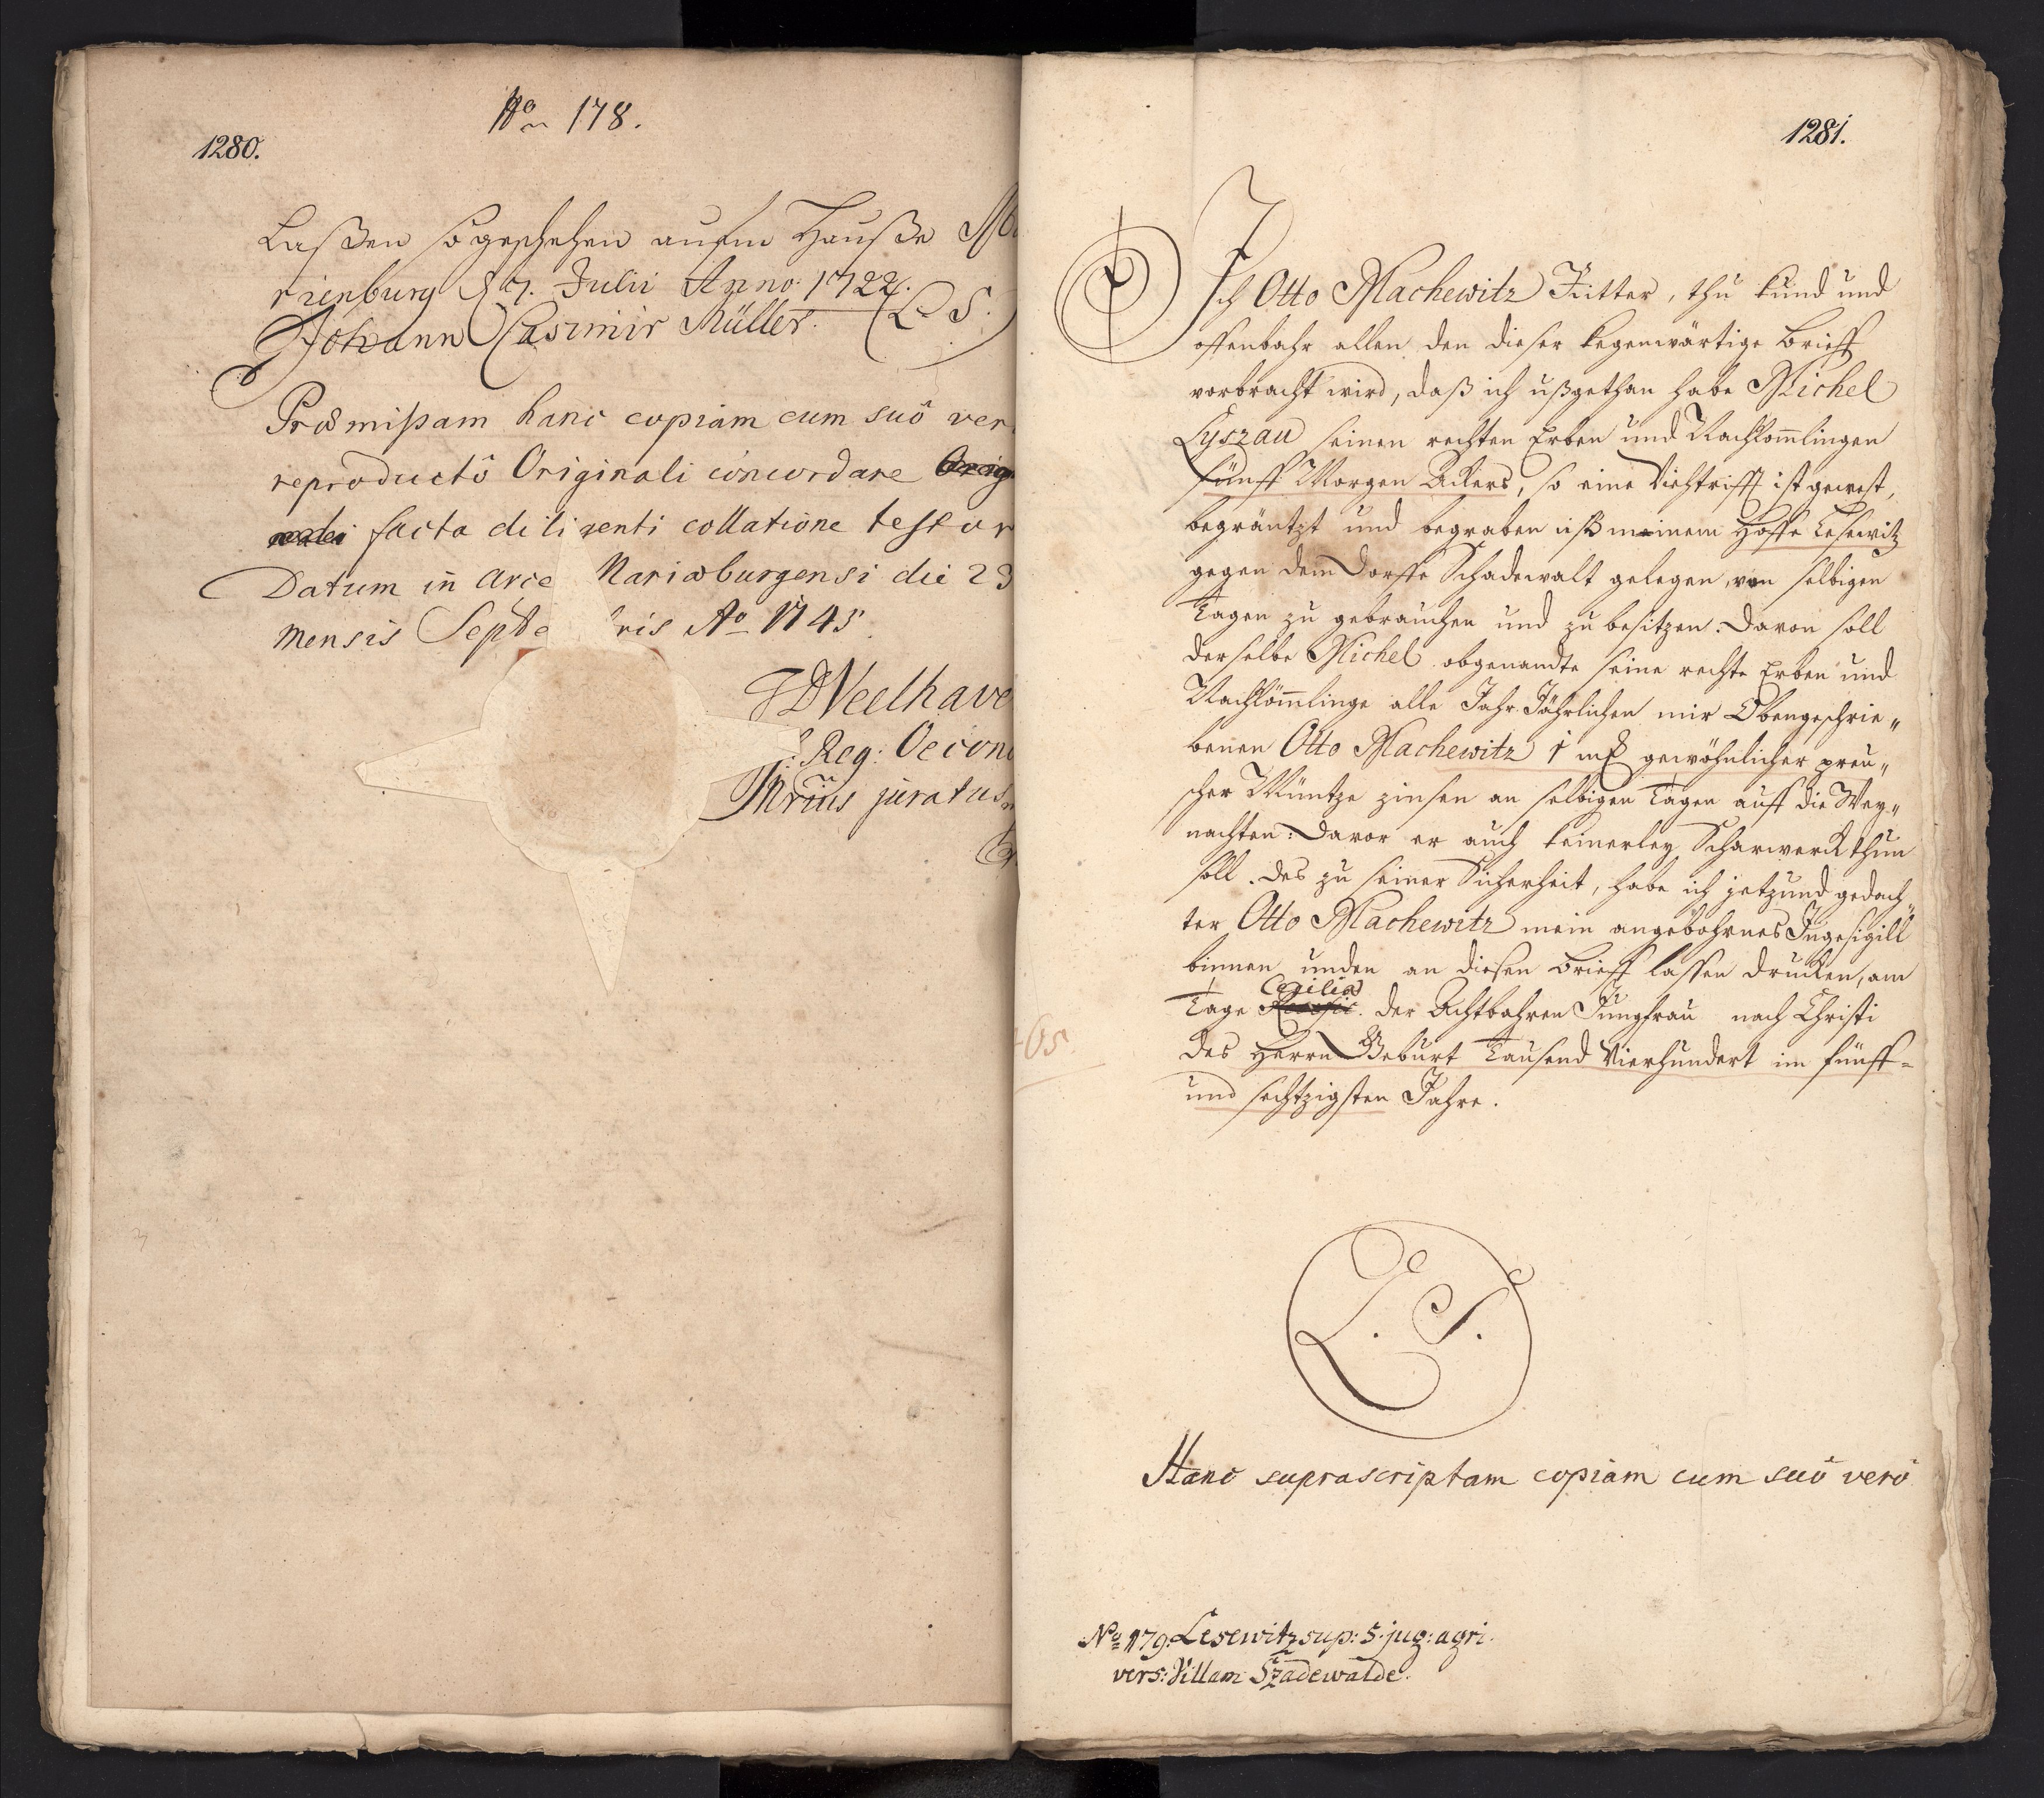 No 178.
1280.
Laßen so geschehen aufm Hauße Ma
rienburg d 7. Julii Anno 1722.
Johann Casimir Müller. (L. S.)
Præmissam hanc copiam cum suô ver
reproductô Originali concordare
facta diligenti collatione testor
Datum in Arce Mariæburgensi die 23
mensis Septe ris Ao 1745.
Reg: Oecono
Nrius juratus
1281.
Ich Otto Machewitz Ritter, thu kund und
offenbahr allen den dieser kegenwärtige Brieff
vorbracht wird, daß ich ußgethan habe Michel
Lyszau seinen rechten Erben und Nachkomlingen
fünff Morgen Ackers, so eine Viehtrifft ist gewest,
begräntzt und begraben uß meinem Hoffe Lesewitz
gegen dem Dorffe Schadewalt gelegen, von selbigen
Tagen zu gebrauchen und zu besitzen. Davon soll
derselbe Michel obgenandte seine rechte Erben und
Nachkömlinge alle Jahr Jährlichen mir Obengeschrie„
benen Otto Machewitz 1 mk gewöhnlicher preu„
scher Müntze zinsen an selbigen Tagen auff die Wey„
nachten: Davor er auch keinerley Scharwerck thun
soll. Des zu seiner Sicherheit, habe ich jetzund gedach„
ter Otto Machewitz mein angebohrnes Ingesigill
binnen unden an diesen Brieff lassen drucken, am
Cæciliæ
Tage der Achtbahren Jungfrau nach Christi
des Herrn Geburt Tausend Vierhundert im fünff=
und sechtzigsten Jahre.
L. S.
Hanc suprascriptam copiam cum suô verô
No 179. Lesewitz sup: 5. jug: agri.
vers: Villam Szadewalde.